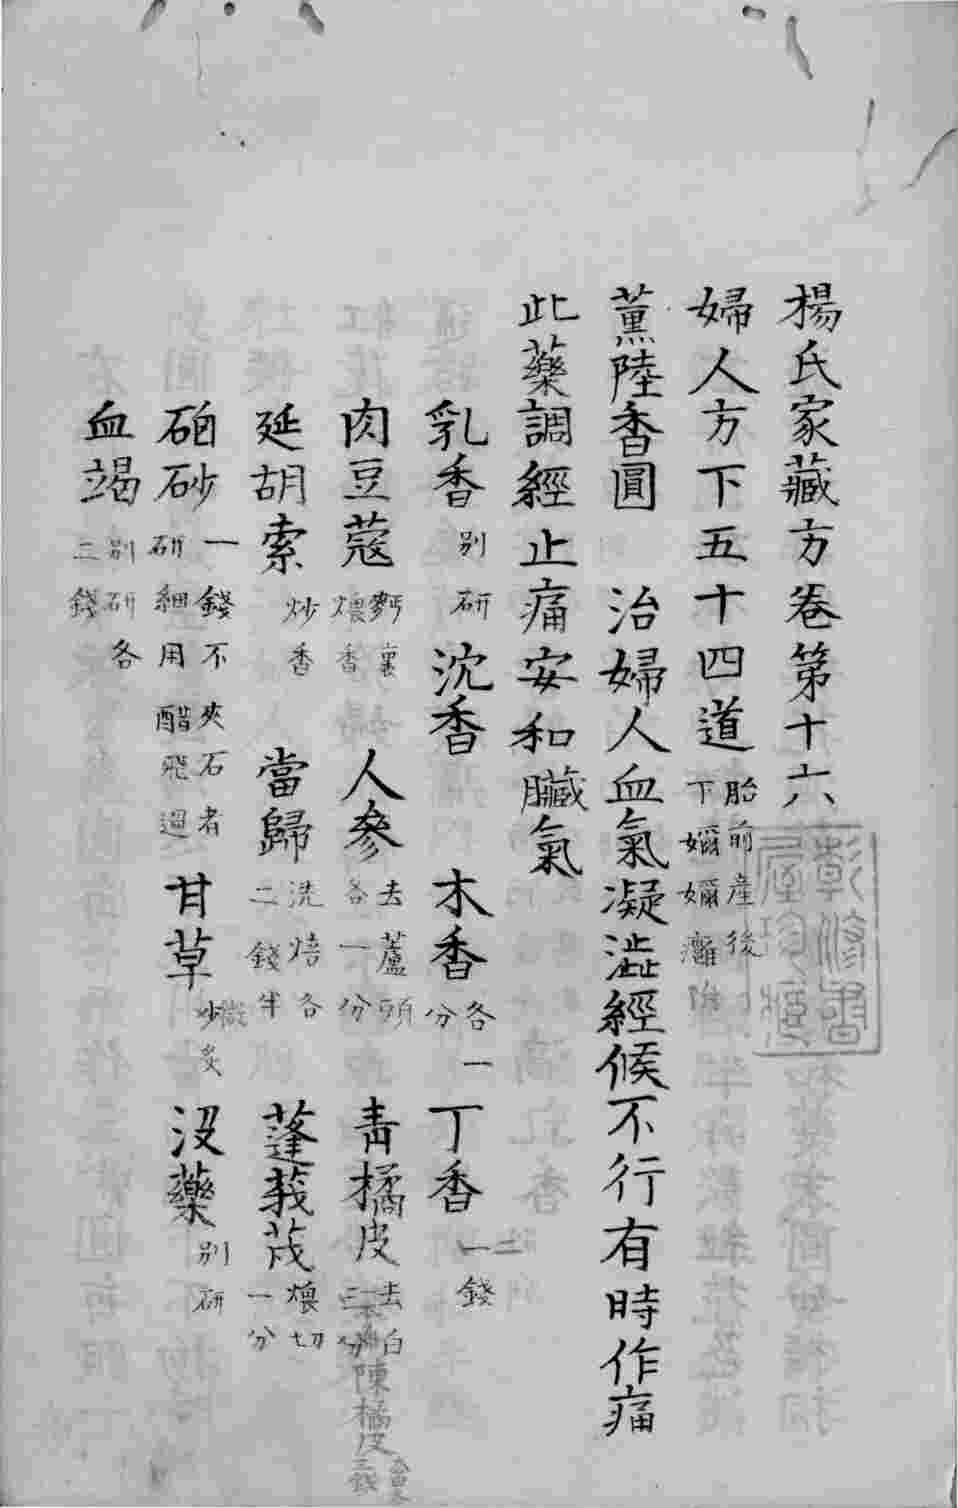 楊氏家藏方卷第十六
婦人方下五十四道胎前産後下嬭嬭癰
薰陸香圓　治婦人血氣凝澁經候不行有時作痛
此藥調經止痛安和臟氣
乳香別研　沈香　木香各一分　丁香一錢
肉豆蔻麪裹煨香　人參去蘆頭各一分　青橘皮去白　陳橘皮
延胡索炒香　當歸洗焙各二錢半　蓬莪茂煨切一分
硇砂一錢不夾石者研細用醋飛過　甘草炒炙　沒藥別研
血竭別研各二錢